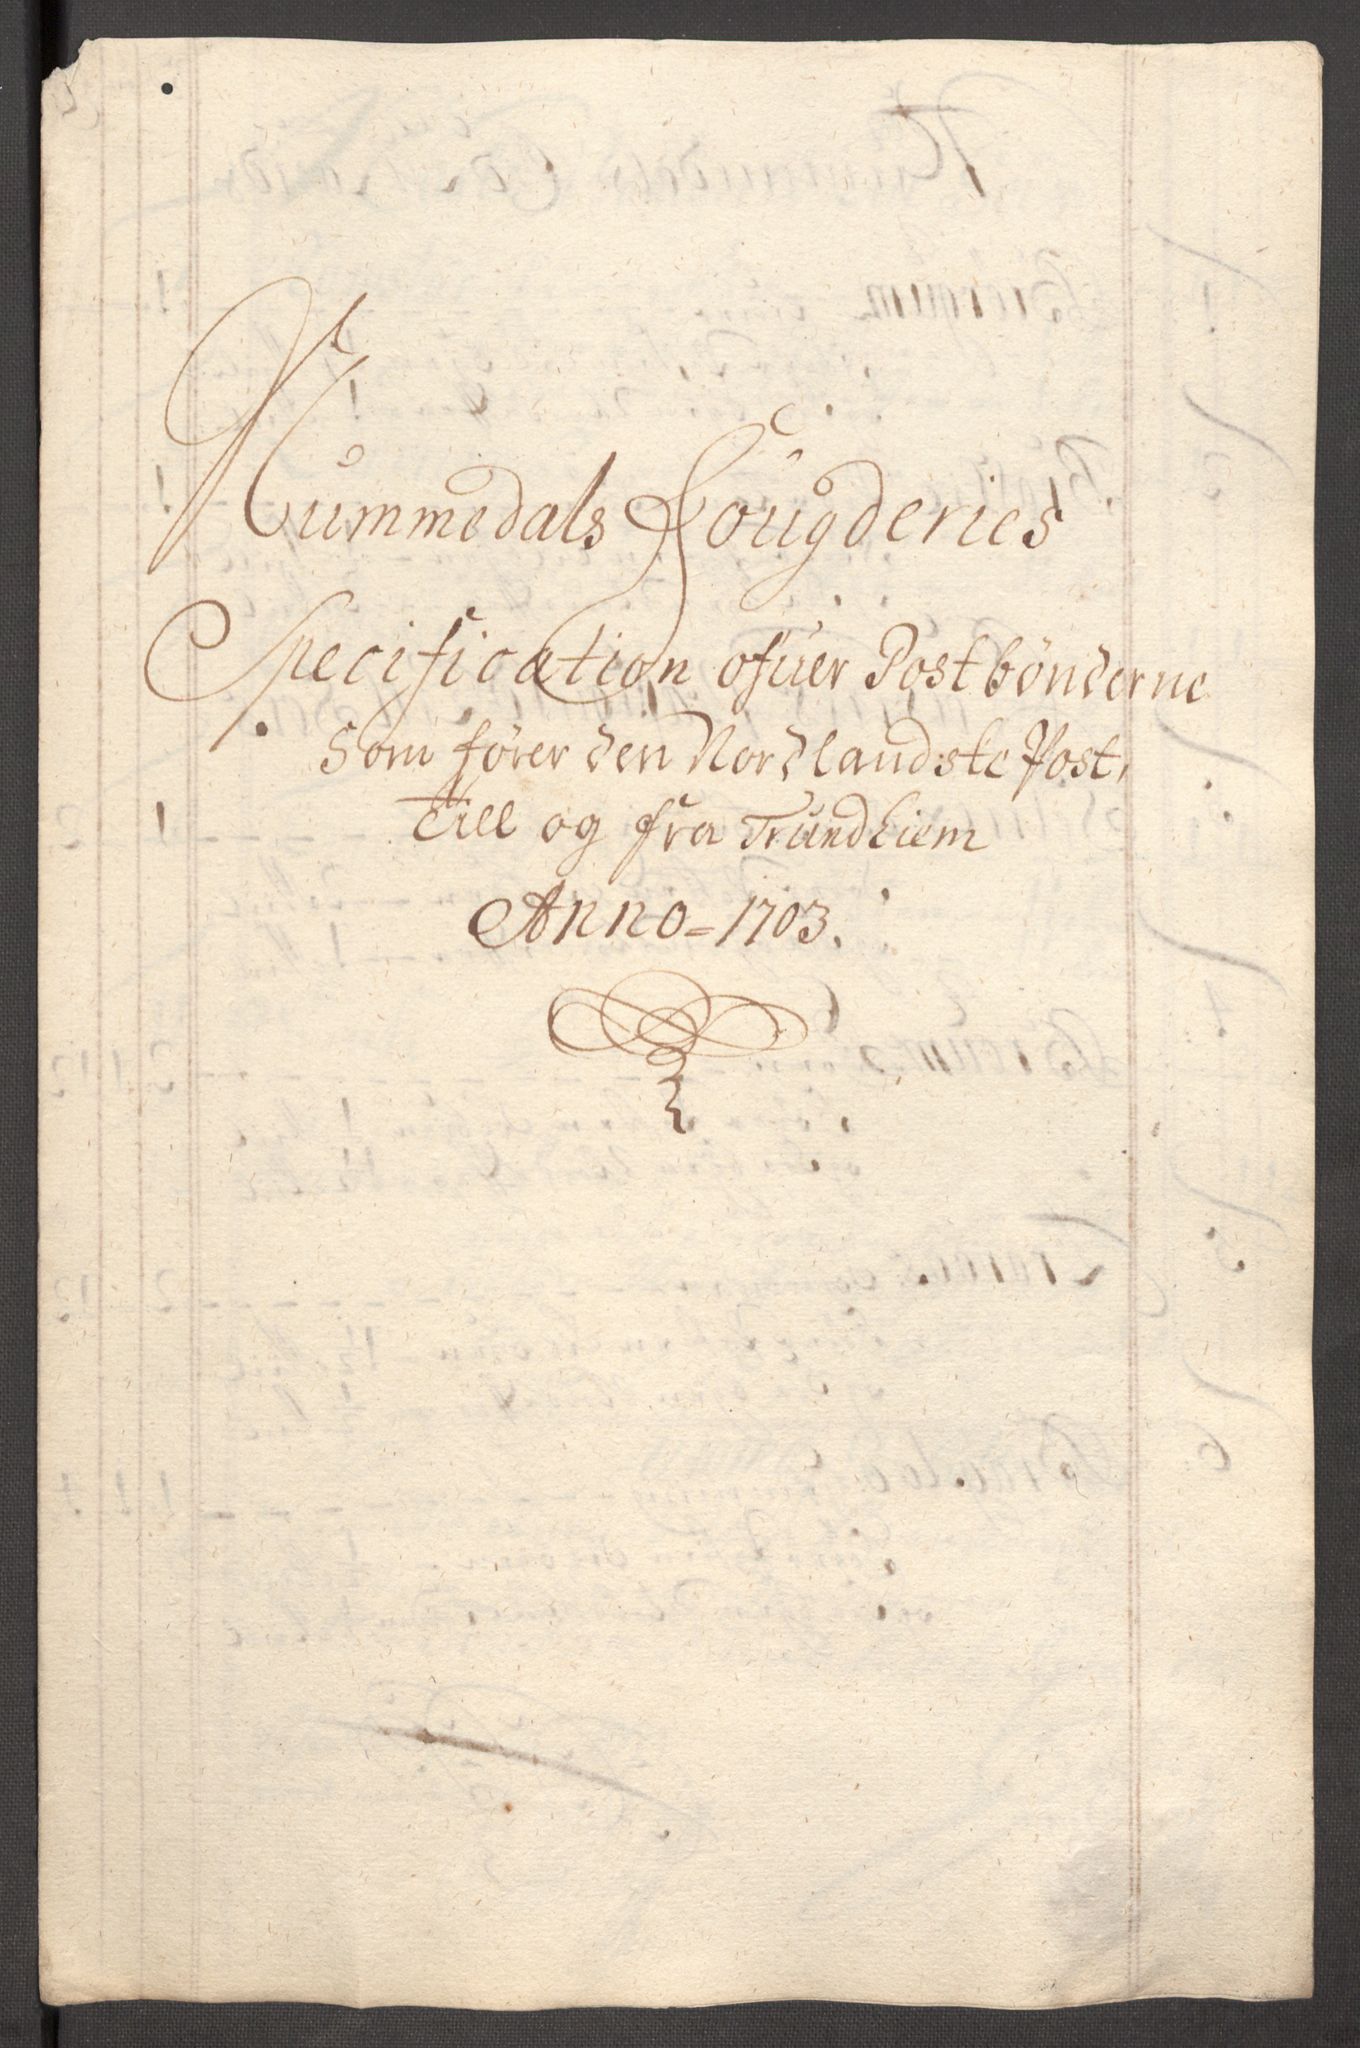 Nummedals Fougderies
Specification ofuer Postbønderne
Som fører den Nordlandske Post,
till og fra Trundhiem
Anno = 1703.